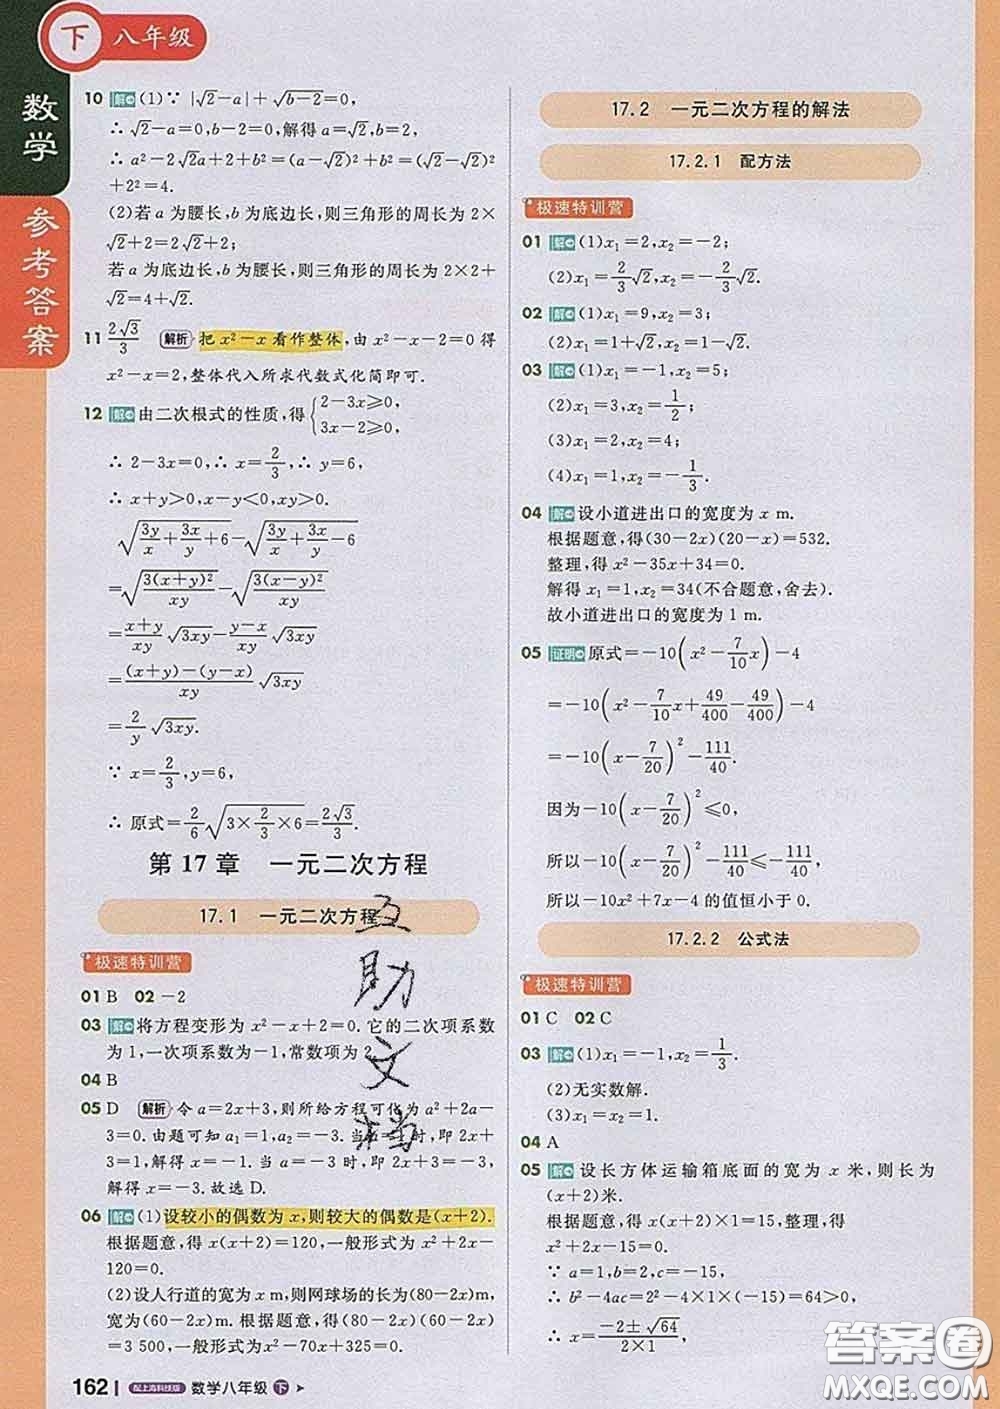 下 八年级
数学
参考答案
10 解 (1)∵ |√2-a|+√(b-2)=0,
∴ √2-a=0,b-2=0,解得 a=√2,b=2,
∴ a²-2√2a+2+b²=(a-√2)²+b²=(√2-√2)²
+2²=4.
(2)若 a 为腰长,b 为底边长,则三角形的周长为 2×
√2+2=2√2+2;
若 a 为底边长,b 为腰长,则三角形的周长为 2×2+
√2=4+√2.
11 2√3/3 解析 把 x²-x 看作整体,由 x²-x-2=0 得
x²-x=2,整体代入所求代数式化简即可.
12 解 由二次根式的性质,得{2-3x≥0,
3x-2≥0,
∴ 2-3x=0,∴ x=2/3,∴ y=6,
∴ x+y>0,x-y<0,xy>0.
√(3y/x+3x/y+6)-√(3y/x+3x/y-6)
=√(3(x+y)²/xy)-√(3(x-y)²/xy)
=(x+y)/xy √3xy-(y-x)/xy √3xy
=((x+y)-(y-x))/xy √3xy
=2/y √3xy.
∵ x=2/3,y=6,
∴ 原式=2/6 √(3×2/3×6)=2√3/3.
第 17 章 一元二次方程
17.1 一元二次方程
极速特训营
01 B 02 -2
03 解 将方程变形为 x²-x+2=0.它的二次项系数
为 1,一次项系数为-1,常数项为 2
04 B
05 D 解析 令 a=2x+3,则所给方程可化为 a²+2a-
3=0.由题可知 a₁=1,a₂=-3.当a=1 时,即 2x+
3=1,解得 x=-1.当 a=-3 时,即 2x+3=-3,
解得 x=-3.故选 D.
06 解 (1)设较小的偶数为 x,则较大的偶数是(x+2).
根据题意,得 x(x+2)=120,一般形式为 x²+2x-
120=0.
(2)设人行道的宽为 x m,则网球场的长为(80-2x)m,
宽为(60-2x)m.根据题意,得(80-2x)(60-2x)
=3 500,一般形式为 x²-
162 配上海科技版 数学八年级 下
17.2 一元二次方程的解法
17.2.1 配方法
极速特训营
01 解 (1)x₁=2,x₂=-2;
(2)x₁=2/3√2,x₂=-2/3√2.
02 解 (1)x₁=9,x₂=3;
(2)x₁=1+√2,x₂=1-√2.
03 解 (1)x₁=-1,x₂=5;
(2)x₁=3,x₂=1/2;
(3)x₁=2,x₂=4;
(4)x₁=1,x₂=-1/3.
04 解 设小道进出口的宽度为 x m.
根据题意,得(30-2x)(20-x)=532.
整理,得 x²-35x+34=0.
解得 x₁=1,x₂=34(不合题意,舍去).
故小道进出口的宽度为 1 m.
05 证明 原式=-10(x²-7/10x)-4
=-10(x²-7/10x+49/400-49/400)-4
=-10(x-7/20)²-111/40.
因为-10(x-7/20)²≤0,
所以-10(x-7/20)²-111/40≤-111/40,
所以-10x²+7x-4 的值恒小于 0.
17.2.2 公式法
极速特训营
01 C 02 C
03 解 (1)x₁=-1,x₂=1/3.
(2)无实数解.
(3)x₁=x₂=1.
04 A
05 解 设长方体运输箱底面的宽为 x 米,则长为
(x+2)米.
根据题意,得 x(x+2)×1=15,整理,得
x²+2x-15=0.
∵ a=1,b=2,c=-15,
∴ b²-4ac=2²-4×1×(-15)=64>0,
∴ x=(-2±√64)/(2×1),
互助文档
答案圈
MXQE.COM